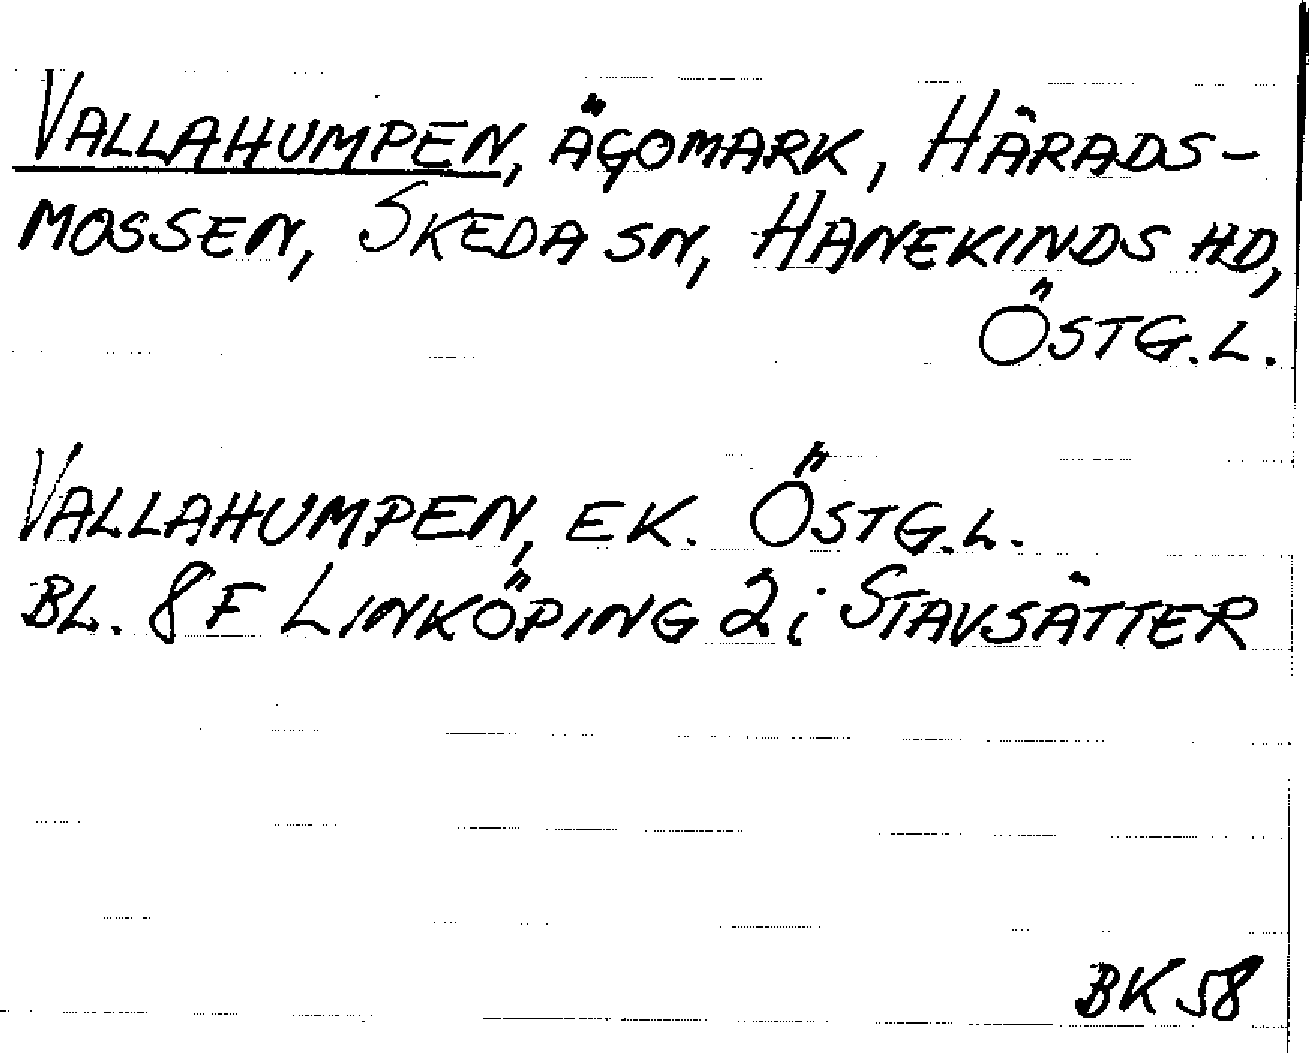 VALLAHUMPEN, ÄGOMARK, HÄRADS-
MOSSEN, SKEDA SN, HANEKINDS HD,
ÖSTG.L.
VALLAHUMPEN, EK. ÖSTG.L.
BL. 8F LINKÖPING 2i STAVSÄTTER
BK 58